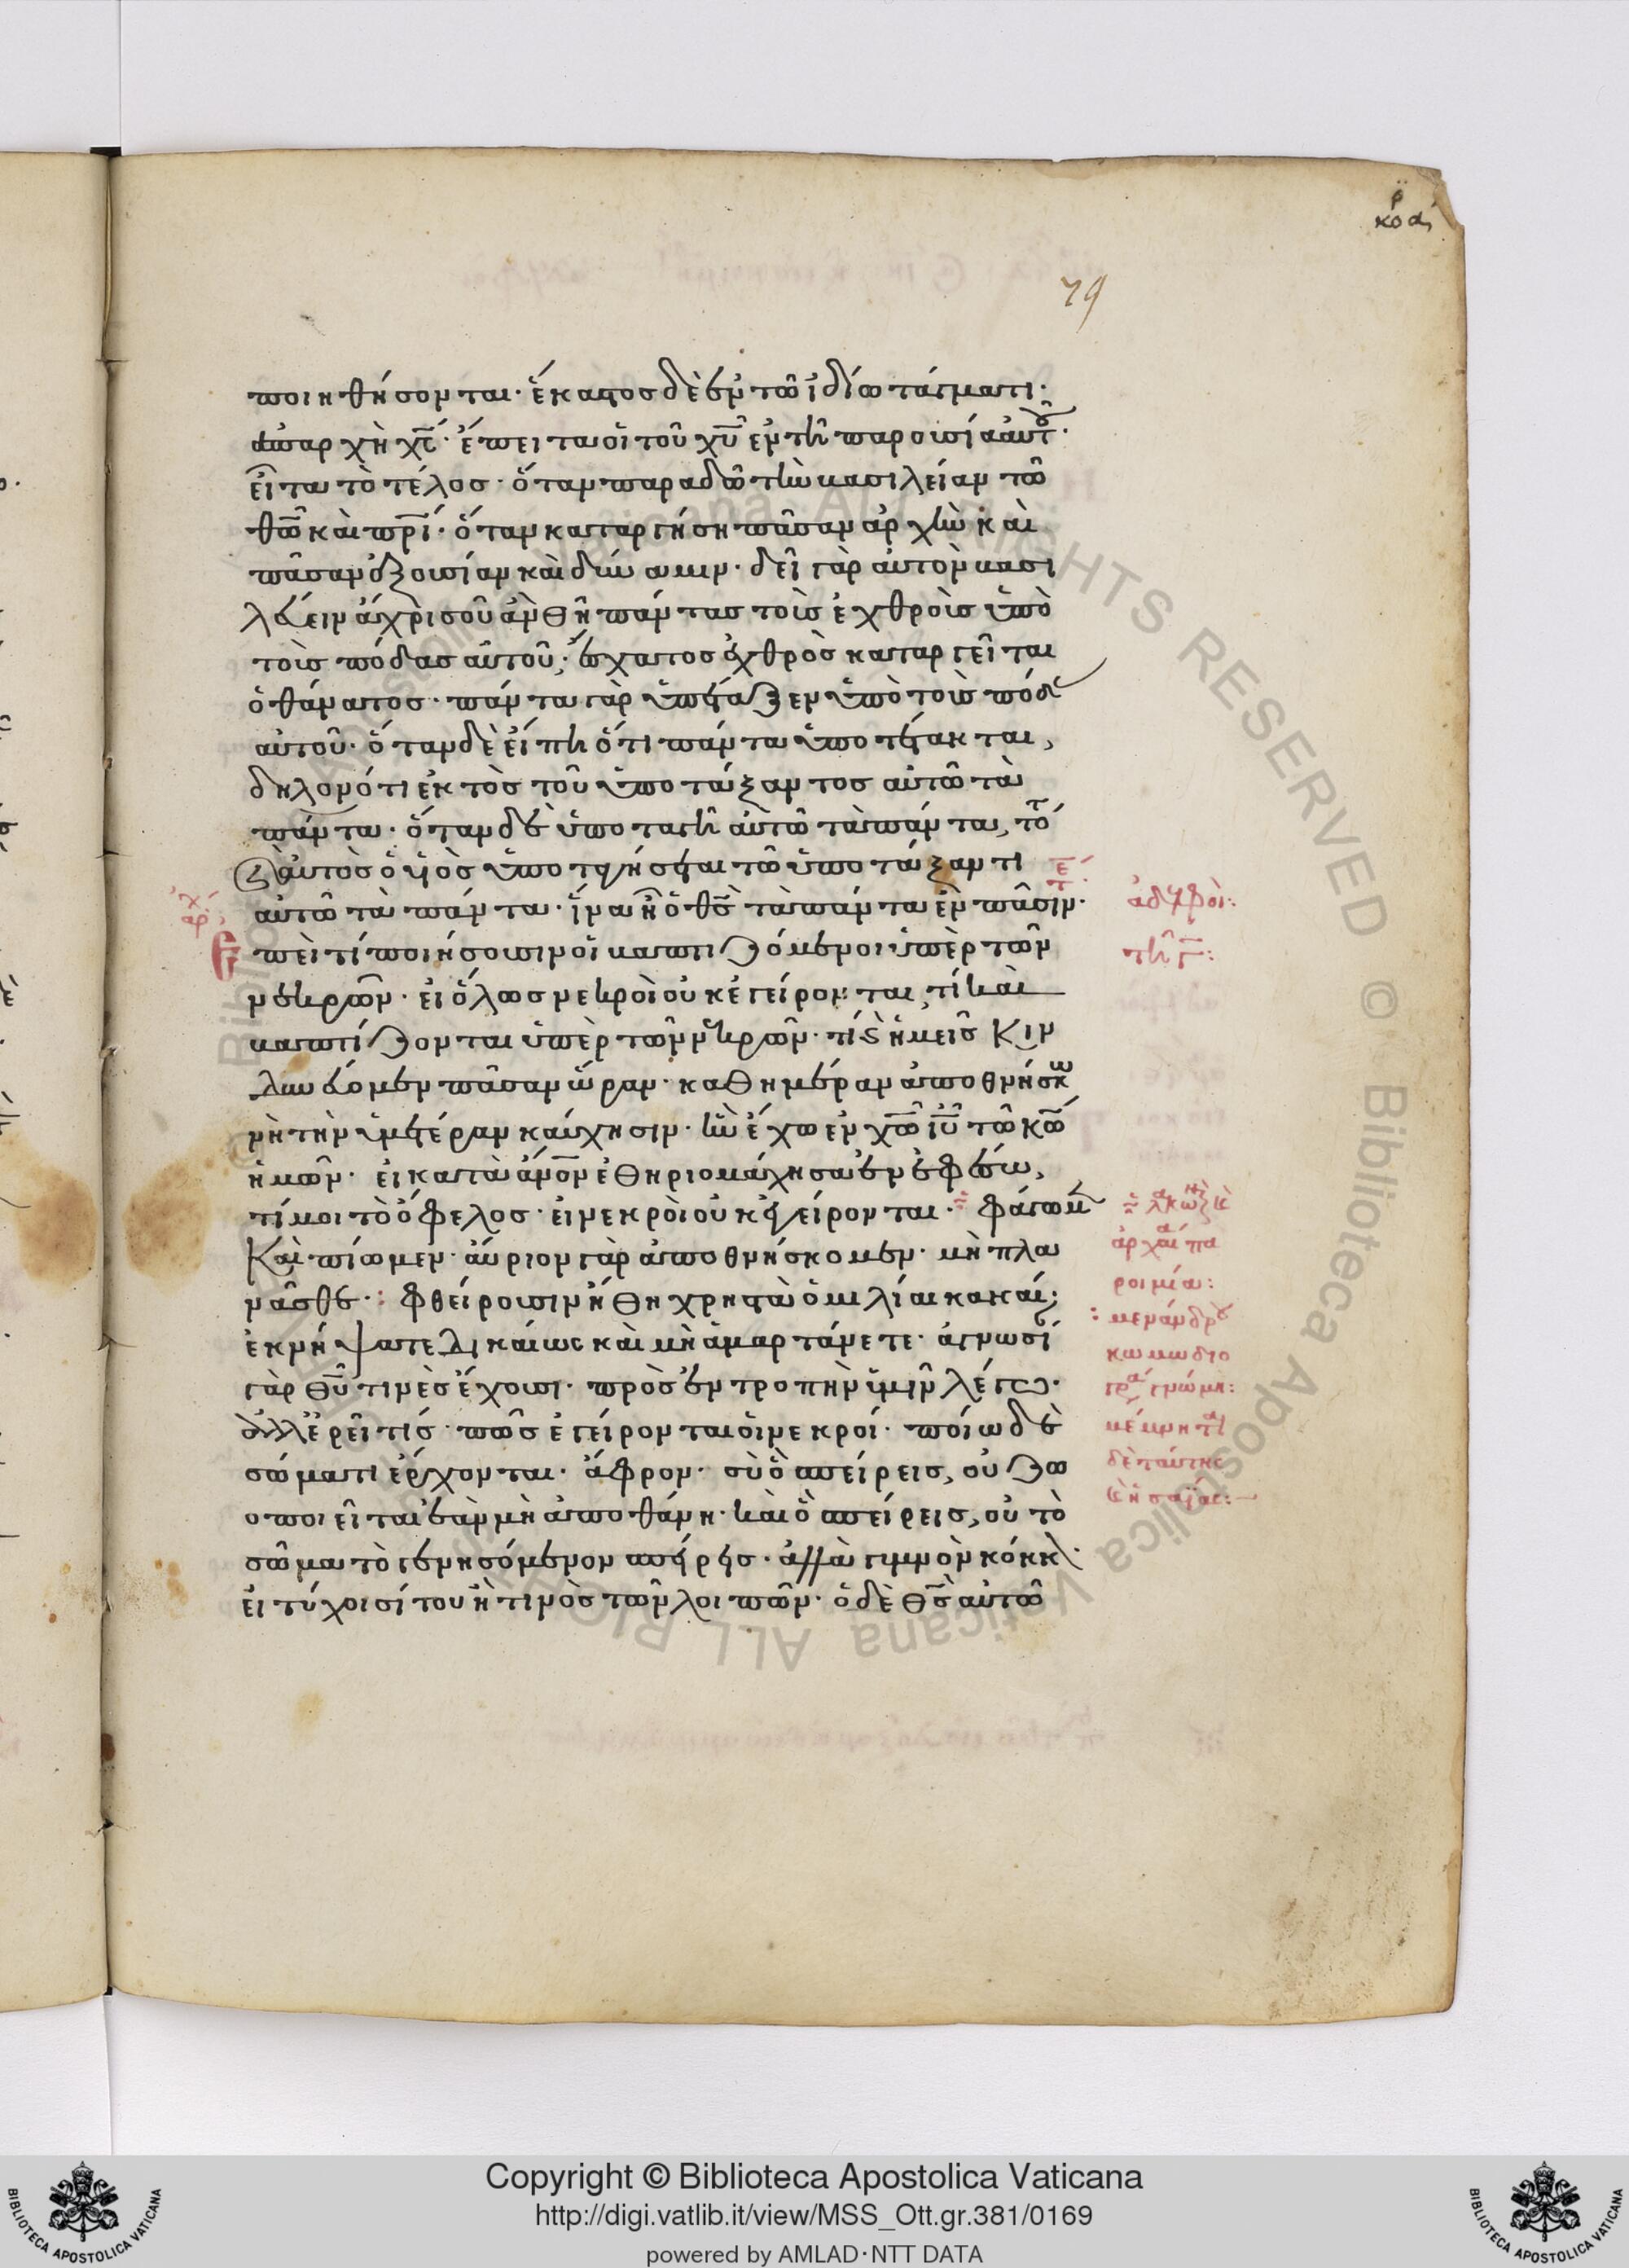 79
ποιηθήσονται· ἕκαστος δὲ ἐν τῶ ἰδίω τάγματι·
ἀπαρχὴ χς· ἔπειτα οἱ τοῦ χυ ἐν τῆ παρουσία αὐτοῦ·
εἶτα τὸ τέλος· ὅταν παραδῶ τὴν βασιλείαν τῶ
θω καὶ πρι· ὅταν καταργήση πᾶσαν ἀρχὴν καὶ
πᾶσαν ἐξουσίαν καὶ δύναμιν· δεῖ γὰρ αὐτὸν βασι
λεύειν ἄχρις οὗ ἂν θῆ πάντας τοὺς ἐχθροὺς ὑπὸ
τοὺς πόδας αὐτοῦ· ἔσχατος ἐχθρὸς καταργεῖται
ὁ θάνατος· πάντα γὰρ ὑπέταξεν ὑπὸ τοὺς πόδας
αὐτοῦ· ὅταν δὲ εἴπη ὅτι πάντα ὑποτέτακται,
δηλονότι ἐκτὸς τοῦ ὑποτάξαντος αὐτῶ τὰ
πάντα· ὅταν δὲ ὑποταγῆ αὐτῶ τὰ πάντα, τότε
καὶ αὐτὸς ὁ υἱὸς ὑποταγήσεται τῶ ὑποτάξαντι
αὐτῶ τὰ πάντα· ἵνα ἦ ὁ θς τὰ πάντα ἐν πᾶσιν·
ἀδελφοὶ:
Ἐπεὶ τί ποιήσουσιν οἱ βαπτιζόμενοι ὑπὲρ τῶν
νεκρῶν· εἰ ὅλως νεκροὶ οὐκ ἐγείρονται, τί καὶ
βαπτίζονται ὑπὲρ τῶν νεκρῶν· τί καὶ ἡμεῖς κιν
δυνεύομεν πᾶσαν ὥραν· καθημέραν ἀποθνήσκω
νὴ τὴν ὑμετέραν καύχησιν· ἣν ἔχω ἐν χω ιυ τῶ κω
ἡμῶν· εἰ κατὰ ανον ἐθηριομάχησα ἐν ἐφέσω,
τί μοι τὸ ὄφελος· εἰ νεκροὶ οὐκ ἐγείρονται· φάγωμεν
καὶ πίωμεν· αὔριον γὰρ ἀποθνήσκομεν· μὴ πλα
ἀρχαία πα
ροιμία:
νᾶσθε· φθείρουσιν ἤθη χρηστὰ ὁμιλίαι κακαί·
μενάνδρου
ἐκνήψατε δικαίως καὶ μὴ ἁμαρτάνετε· ἀγνωσί
κωμωδιο
γὰρ θυ τινὲς ἔχουσι· πρὸς ἐντροπὴν ὑμῖν λέγω·
γρά γνώμη:
ἀλλ' ἐρεῖ τίς· πῶς ἐγείρονται οἱ νεκροί· ποίω δὲ
μέμνηται
σώματι ἔρχονται· ἄφρον· σὺ ὃ σπείρεις, οὐ ζω
δὲ ταύτης
οποιεῖται ἐὰν μὴ ἀποθάνη· καὶ ὃ σπείρεις, οὐ τὸ
σῶμα τὸ γενησόμενον σπείρεις· ἀλλὰ γυμνὸν κόκκον·
εἰ τύχοι σίτου ἤ τινὸς τῶν λοιπῶν· ὁ δὲ θς αὐτῶ
Copyright © Biblioteca Apostolica Vaticana
http://digi.vatlib.it/view/MSS_Ott.gr.381/0169
powered by AMLAD·NTT DATA